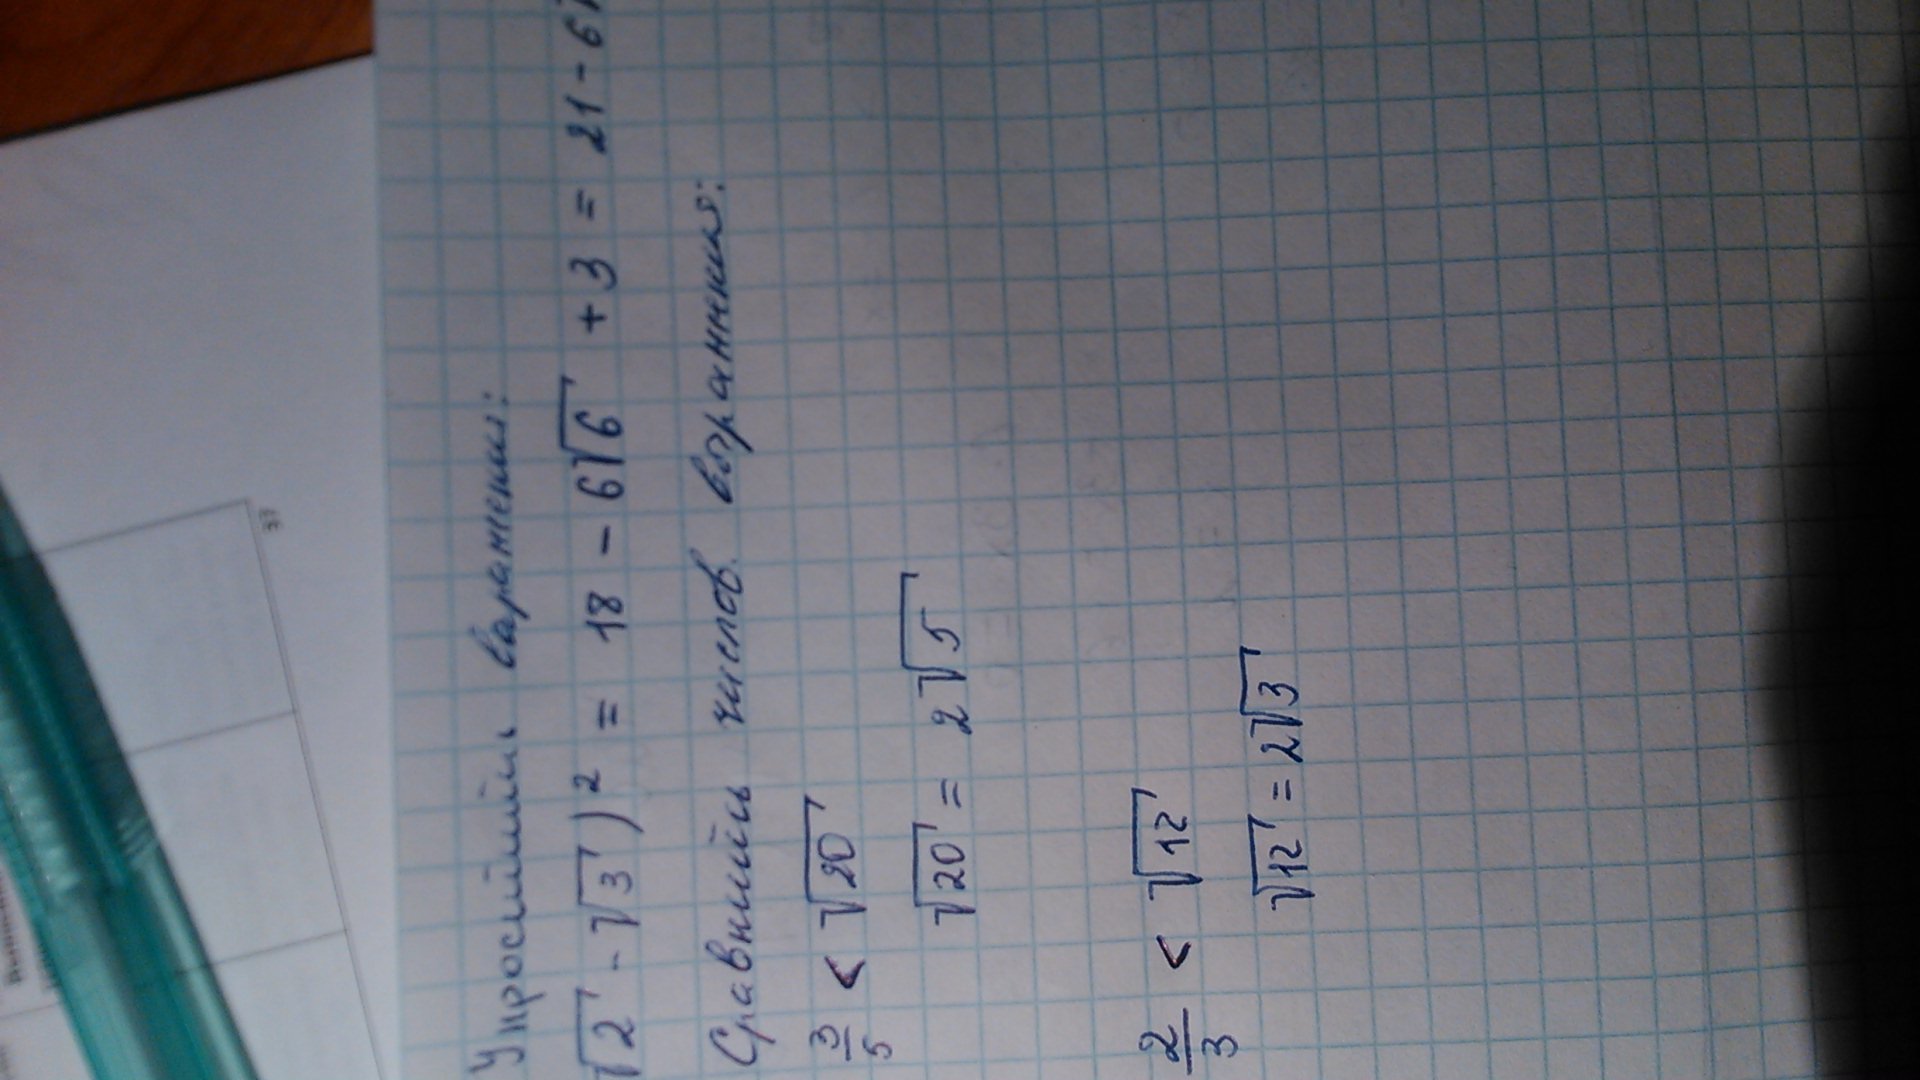 Упростить выражения:
√2 - √3)² = 18 - 6√6 + 3 = 21 - 6
Сравнить числов. выражения:
3/5 < √20
√20 = 2√5
2/3 < √12
√12 = 2√3
37